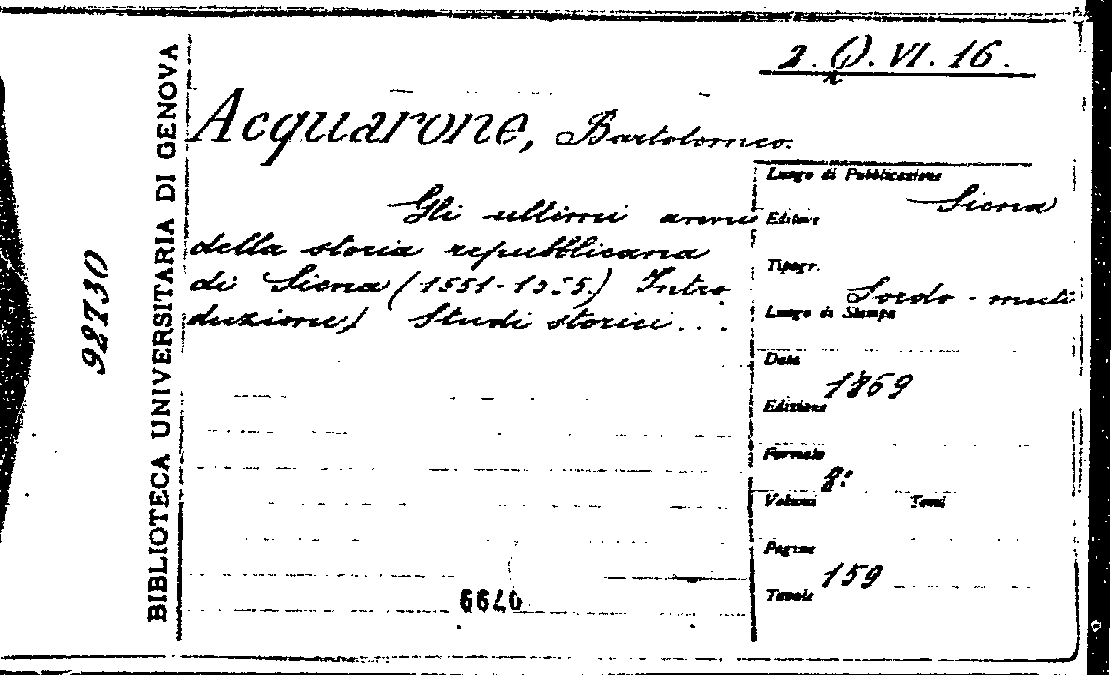 2. Q. VI. 16.
Acquarone, Bartolomeo.
Gli ultimi anni
della storia repubblicana
di Siena (1551-1555.) Intro
duzione) Studi storici...
Luogo di Pubblicazione
Siena
Editore
Tipogr.
Sordo-muti
Luogo di Stampa
Data
1869
Edizione
Formato
8:
Volumi Tomi
Pagine
159
Tavole
BIBLIOTECA UNIVERSITARIA DI GENOVA
92730